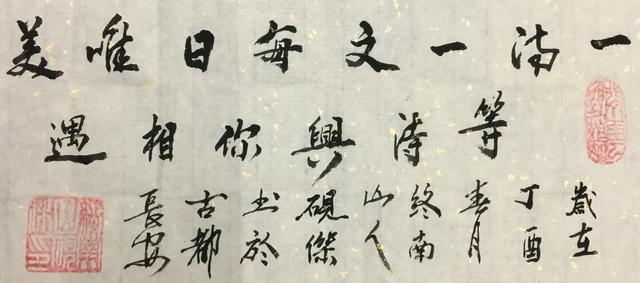 一诗一文每日唯美
等待與你相遇
歲在
丁酉
春月
終南
山人
硯傑
书於
古都
長安